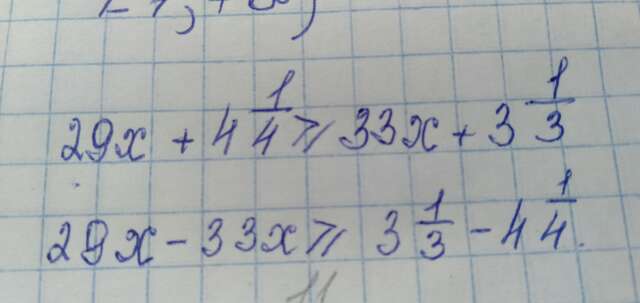 29x + 4 1/4 ⩾ 33x + 3 1/3
29x - 33x ⩾ 3 1/3 - 4 1/4